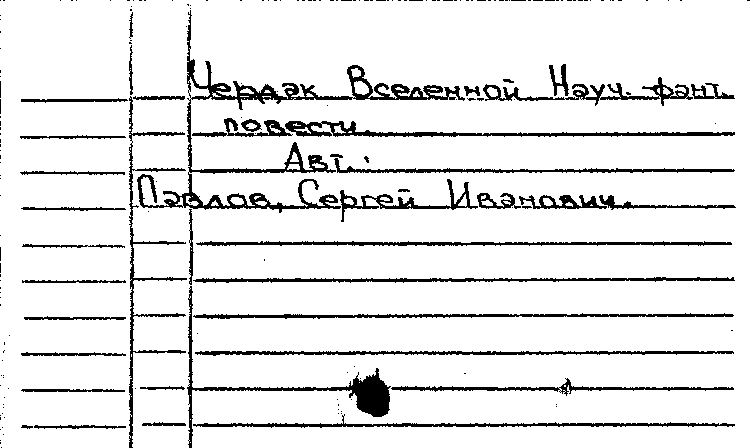 Чердак Вселенной Науч.-фант.
повести.
Авт.:
Павлов, Сергей Иванович.